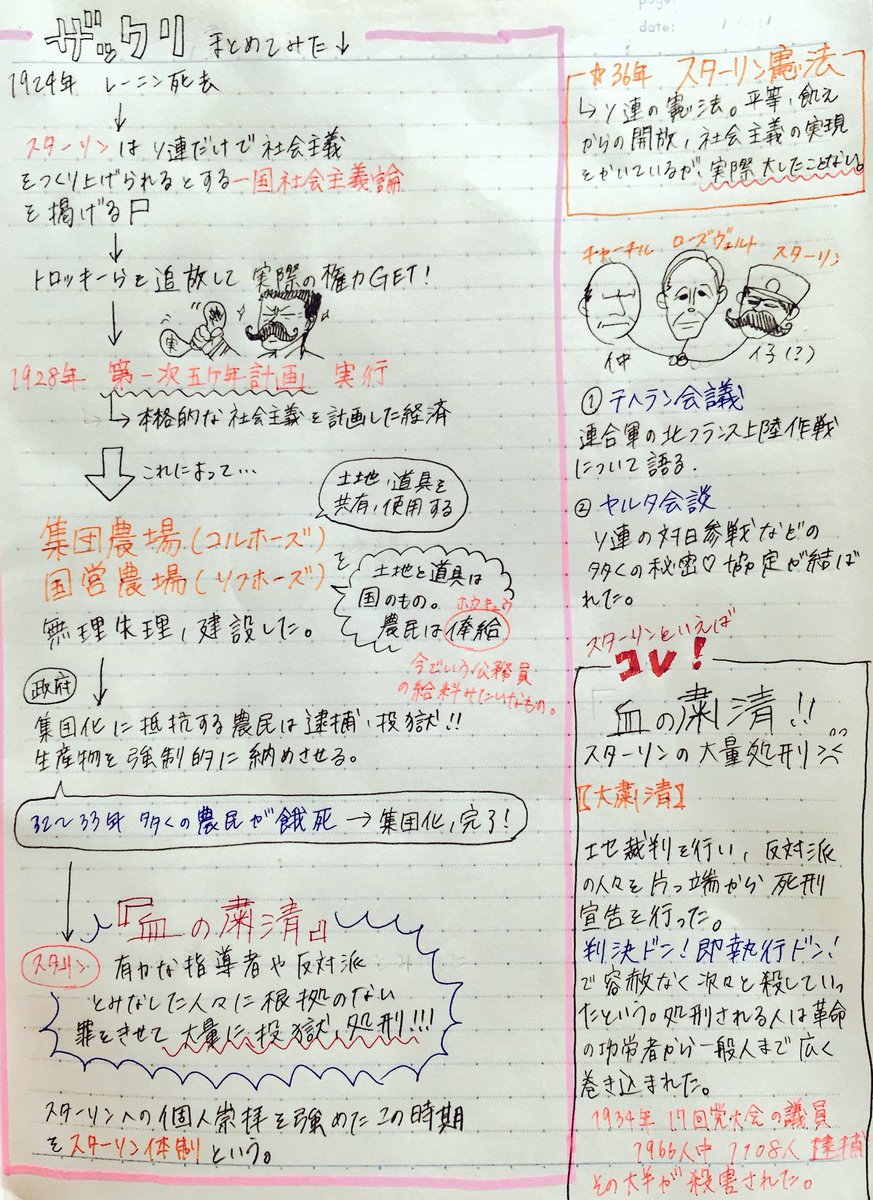 page:
date:
ザックリ まとめてみた↓
1924年 レーニン死去
↓
スターリンはソ連だけで社会主義
をつくり上げられるとする一国社会主義論
を掲げる
↓
トロッキーらを追放して実際の権力GET!
↓
実
1928年 第一次五ヶ年計画 実行
↳本格的な社会主義を計画した経済
これによって…
土地、道具を
共有、使用する
集団農場(コルホーズ)
国営農場(ソフホーズ)を
無理矢理、建設した。
土地と道具は
国のもの。
ホウキュウ
農民は俸給
今でいう公務員
の給料みたいなもの。
政府
集団化に抵抗する農民は逮捕、投獄!!
生産物を強制的に納めさせる。
32〜33年 多くの農民が餓死→集団化、完了!
↓
『血の粛清』
スターリン 有力な指導者や反対派
とみなした人々に根拠のない
罪をきせて大量に投獄、処刑!!!
スターリンへの個人崇拝を強めたこの時期
をスターリン体制という。
☆36年 スターリン憲法
↳ソ連の憲法。平等、飢え
からの開放、社会主義の実現
をかいているが、実際大したことない。
チャーチル ローズヴェルト スターリン
仲 イ子(?)
① テヘラン会議
連合軍の北フランス上陸作戦
について語る.
② ヤルタ会談
ソ連の対日参戦などの
多くの秘密♡協定が結ば
れた。
スターリンといえば
コレ!
血の粛清!!
スターリンの大量処刑
【大粛清】
エセ裁判を行い、反対派
の人々を片っ端から死刑
宣告を行った。
判決ドン!即執行ドン!
で容赦なく次々と殺していっ
たという。処刑される人は革命
の功労者から一般人まで広く
巻き込まれた。
1934年 17回党大会の議員
1966人中 1108人 逮捕
その大半が殺害された。